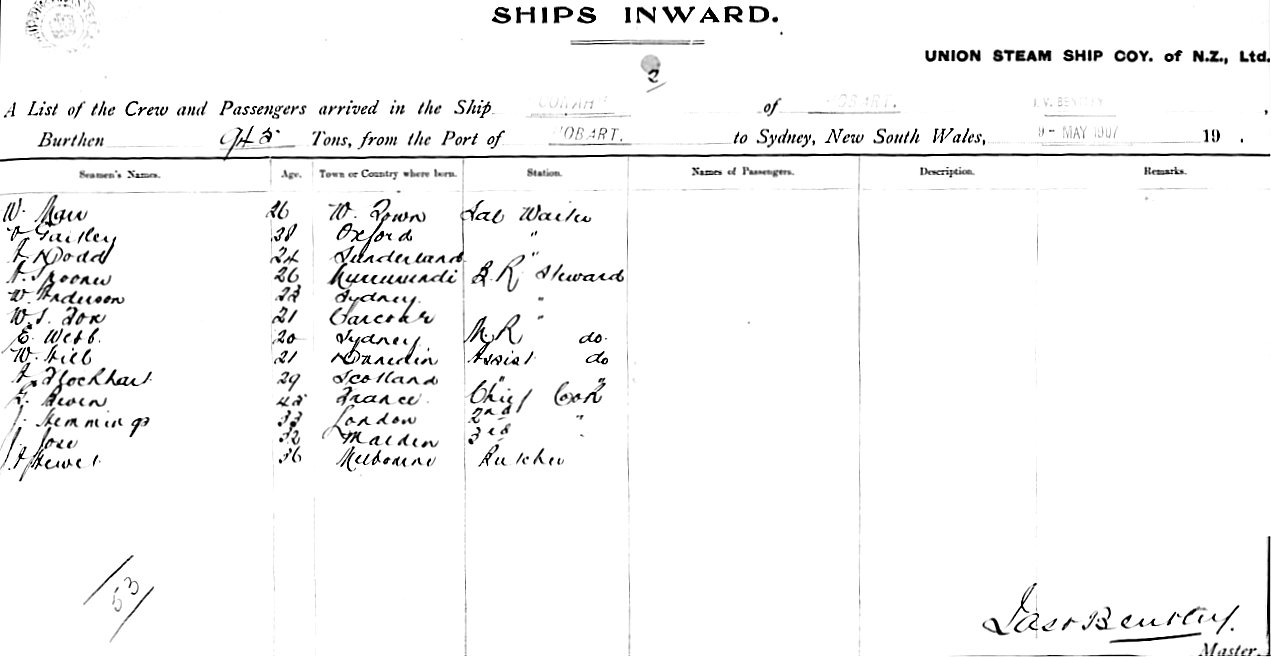 SHIPS INWARD.
UNION STEAM SHIP COY. of N.Z., Ltd.
2
A List of the Crew and Passengers arrived in the Ship of HOBART. J.V. BENTLEY,
Burthen 945 Tons, from the Port of HOBART. to Sydney, New South Wales, 9 - MAY 1907 19 .
Seamen's Names. Age. Town or Country where born. Station. Names of Passengers. Description. Remarks.
W. 26 W. Town Sal Waiter
38 Oxford "
A Dodd 24 Sunderland "
A. Spooner 26 Murrurundi B. R Steward
W. Anderson 22 Sydney. "
W. S. Fox 21 "
E. Webb. 20 Sydney M. R do.
W. Hill 21 Dunedin Assist do
A Flockhart 29 Scotland " "
G. Beven 42 France. Chief Cook
J. Hemmings 33 London 2nd "
J. Jose 32 Malden 3rd "
36 Melbourne Butcher
53
Jas V Bentley.
Master.